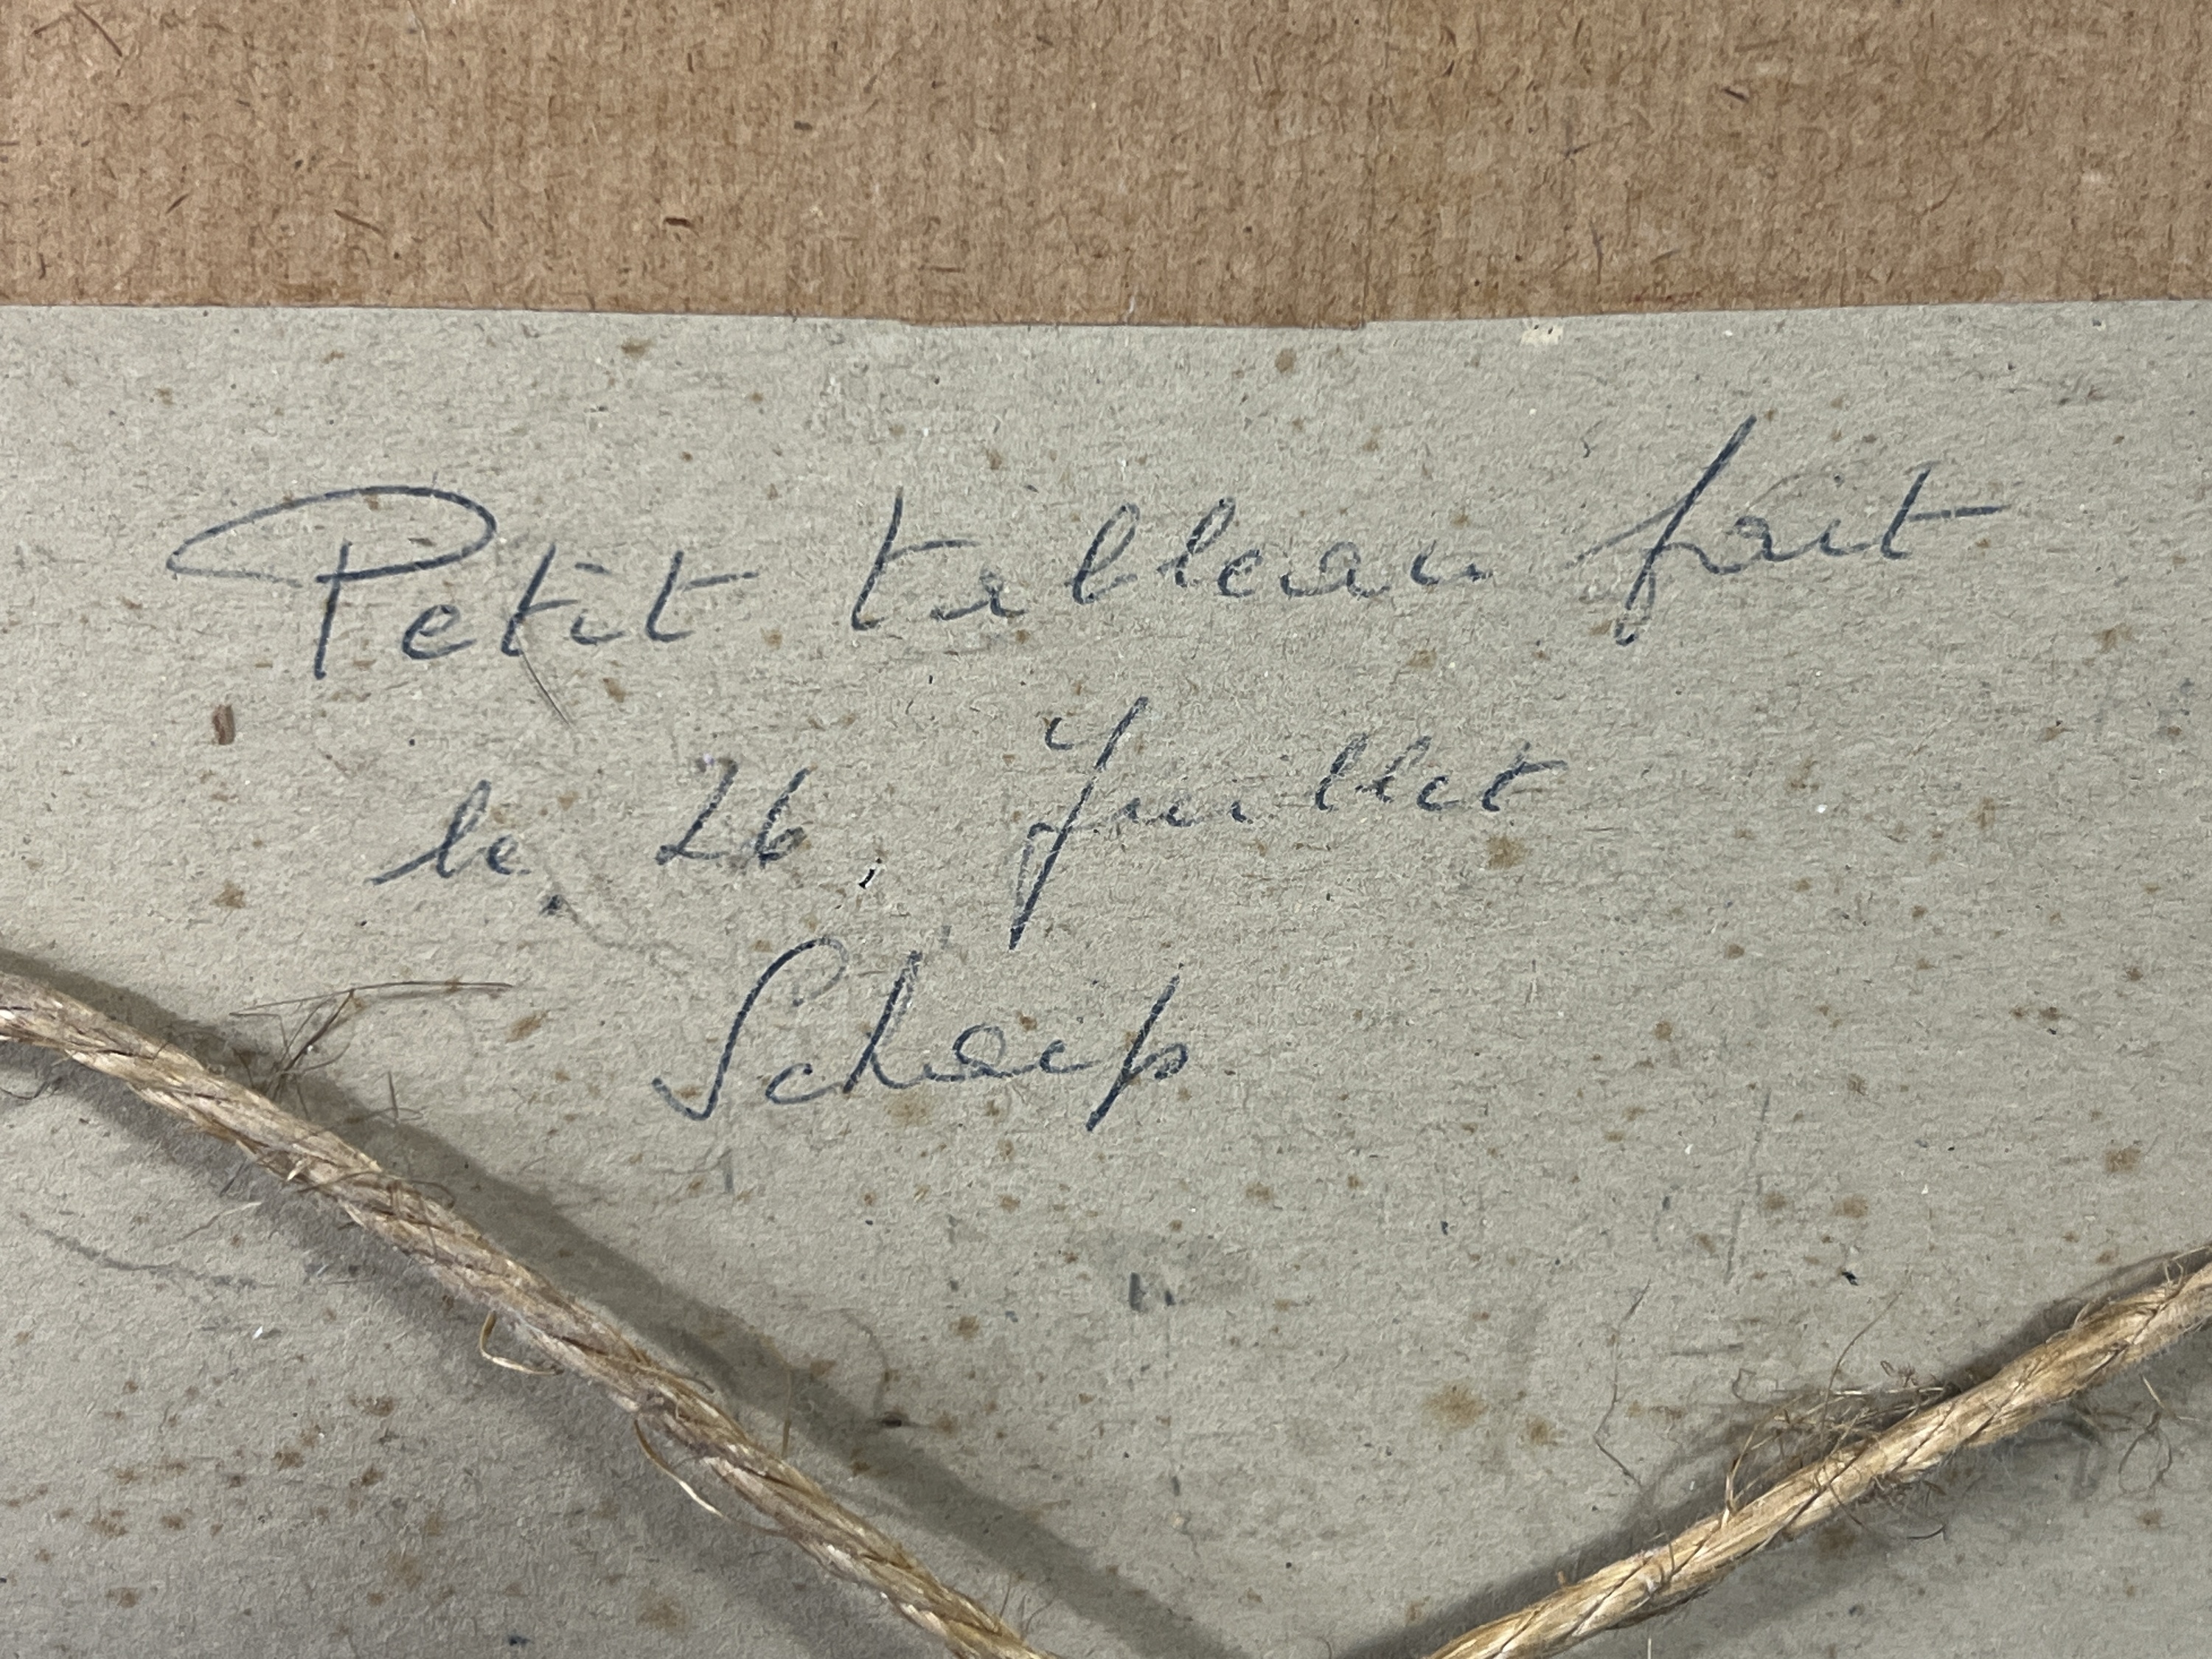 Petit tableau fait
le 26 Juillet
Schaap